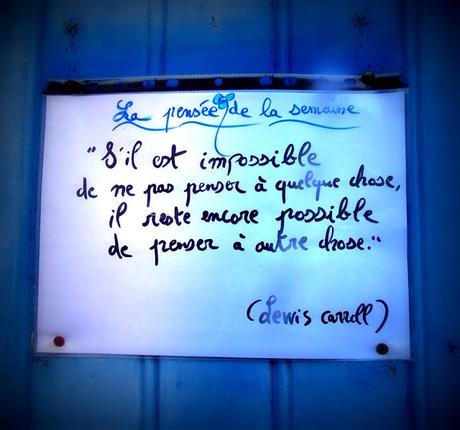 La pensée de la semaine
"S'il est impossible
de ne pas penser à quelque chose,
il reste encore possible
de penser à autre chose."
(Lewis Carroll)